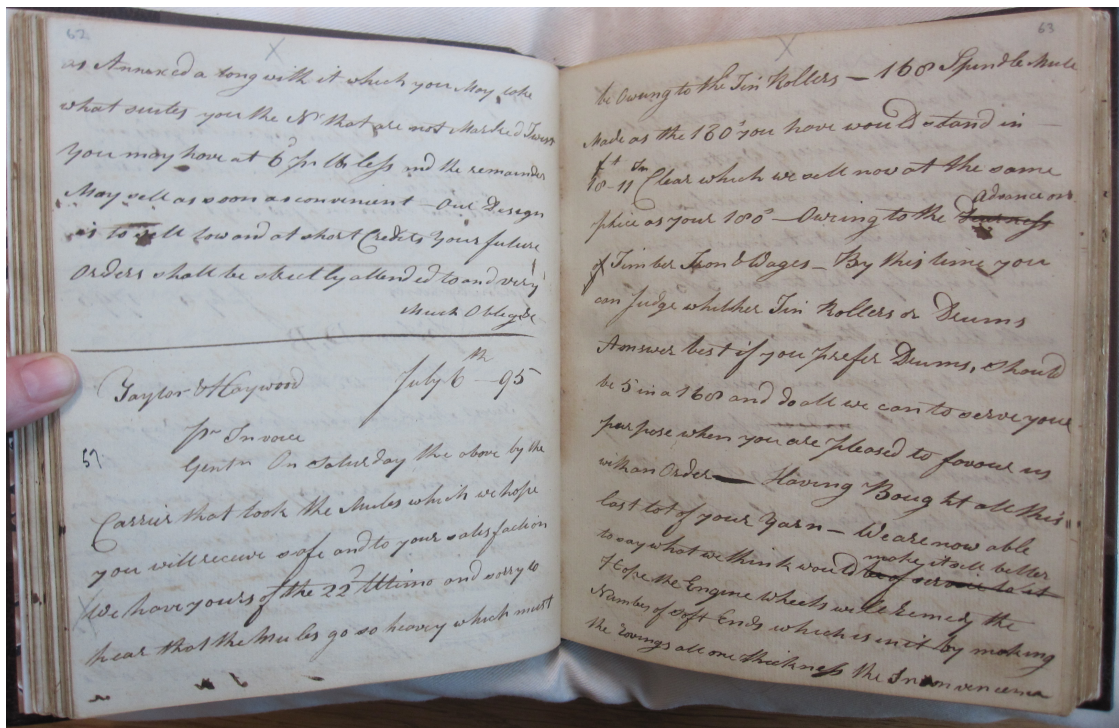 62
as Annexed a long with it which you May take
what suites you the Nos that are not Marked Twist
you may have at 6d pr lb less and the remainder
May sell as soon as convenient – Our Design
is to sell low and at short Credits your future
Orders shall be strictly attended to and very
Much Oblige &c
Taylor & Haywood July 6th – 95
pr Invoice
57 Gentn On Saturday the above by the
Carrier that took the Mules which we hope
you will receive safe and to your satisfaction
We have yours of the 22d Ultimo and sorry to
hear that the Mules go so heavy which must
63
be Owing to the Tin Rollers – 168 Spindle Mule
Made as the 160s you have would stand in
18ft – 11In Clear which we sell now at the same
price as your 180s – Owing to the Dearness Advance on
of Timber Iron & Wages – By this time you
can Judge whether Tin Rollers or Drums
Answer best if you prefer Drums, should
be 5 in a 168 and do all we can to serve your
purpose when you are pleased to favour us
with an Order – Having Bought all this
last lot of your Yarn – We are now able
to say what we think would be of service to it make itsell better
Hope the Engine Wheels will remedy the
Number of soft Ends which is in it by making
the rovings all one thickness the